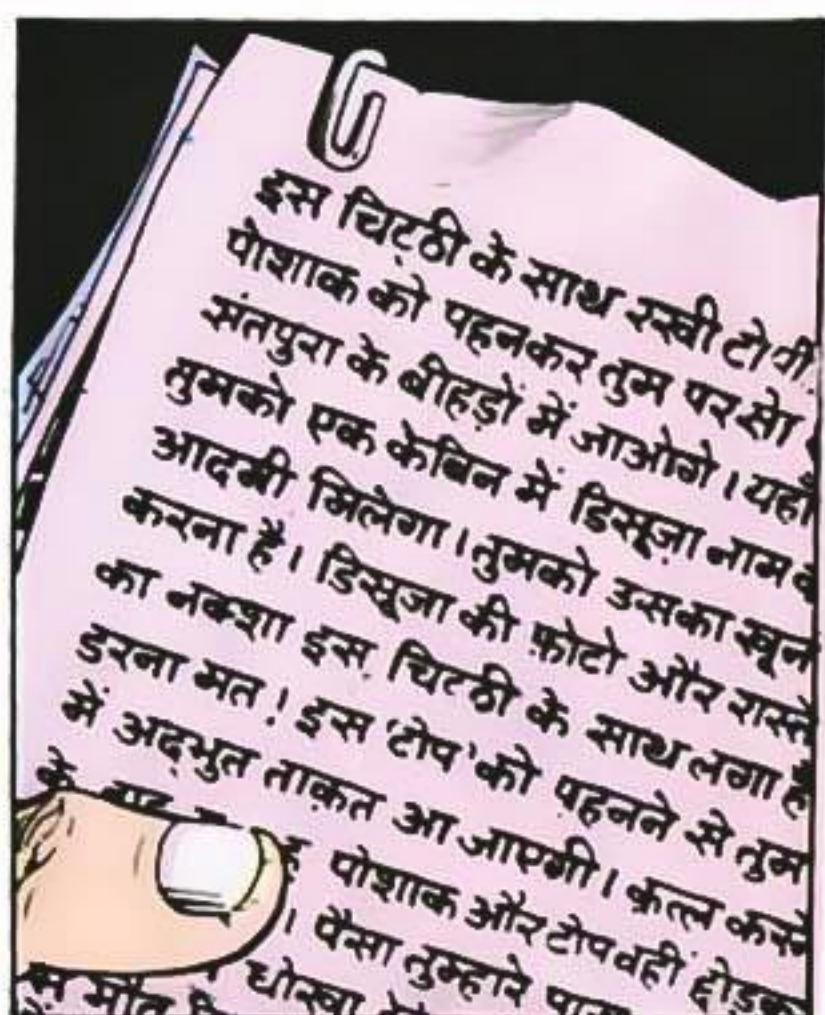 इस चिट्ठी के साथ रखी टोपी
पोशाक को पहनकर तुम परसों
संतपुरा के बीहड़ों में जाओगे। यहाँ
तुमको एक केबिन में डिसूज़ा नाम
आदमी मिलेगा। तुमको उसका खून
करना है। डिसूजा की फ़ोटो और रास्ते
का नक्शा इस चिटठी के साथ लगा है
डरना मत! इस 'टोप' को पहनने से तुम
में अद्भुत ताक़त आ जाएगी। क़त्ल करने
के पोशाक और टोप वहीं छोड़कर
। पैसा तुम्हारे
धोखा
मौत